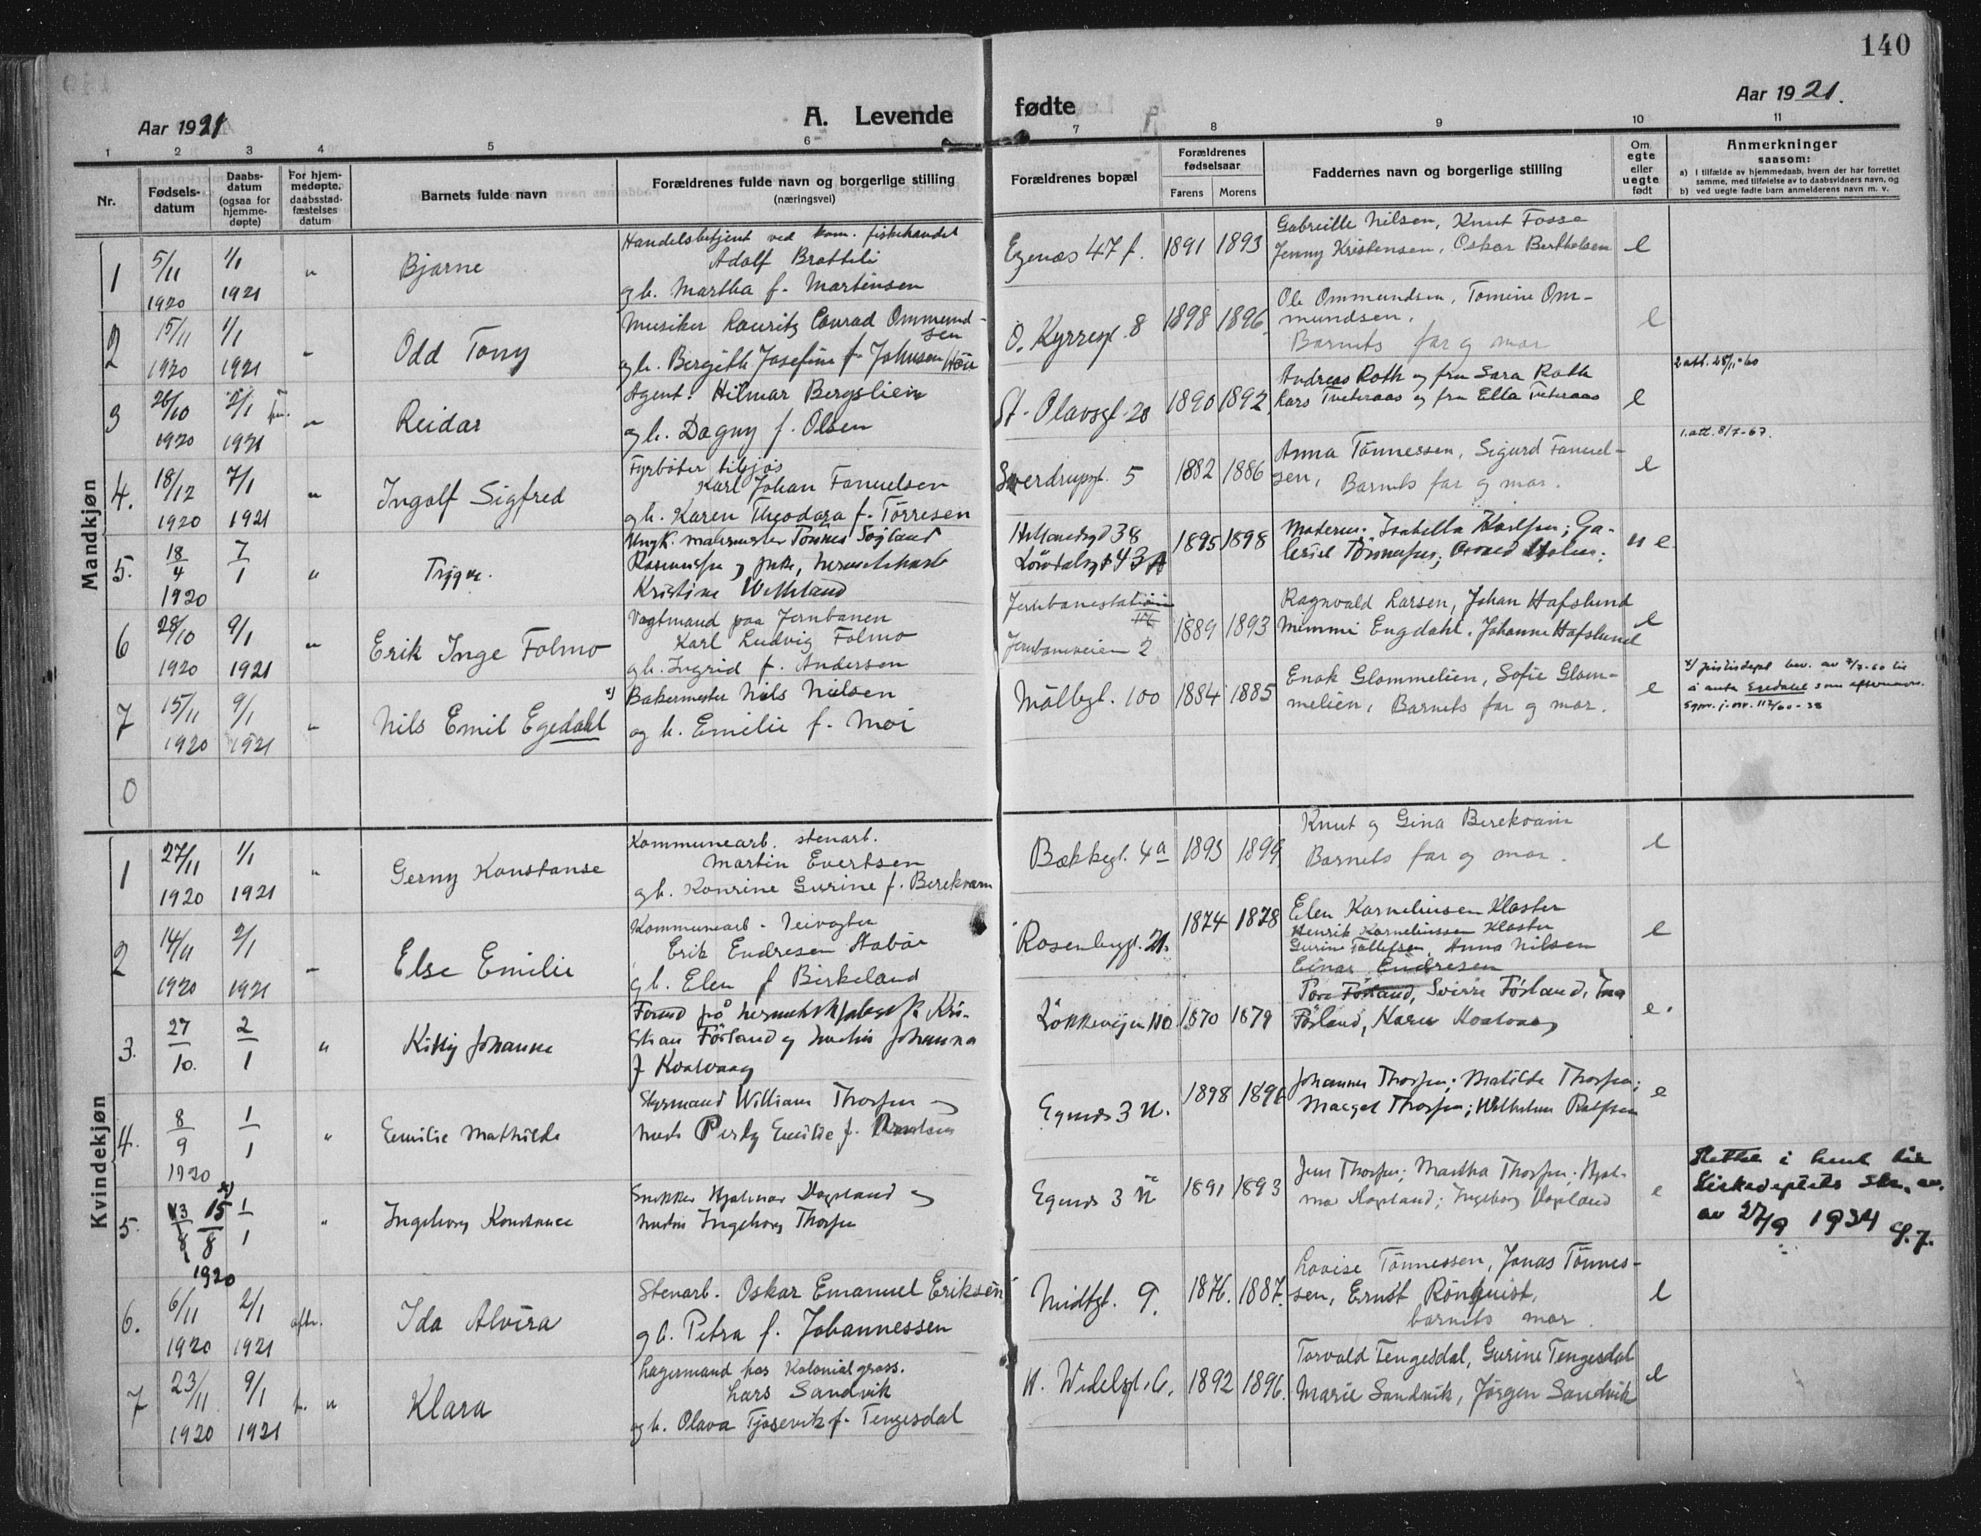 140
Aar 1921
A. Levende fødte
Aar 1921.
1 2 3 4 5 6 7 8 9 10 11
Nr.
Fødsels-
datum
Daabs-
datum
(ogsaa for
hjemme-
døpte)
For hjem-
medøpte,
daabsstad-
fæstelses
datum
Barnets fulde navn
Forældrenes fulde navn og borgerlige stilling
(næringsvei)
Forældrenes bopæl
Forældrenes
fødselsaar
Farens Morens
Faddernes navn og borgerlige stilling
Om
egte
eller
uegte
født
Anmerkninger
saasom:
a) I tilfælde av hjemmedaab, hvem der har forrettet
samme, med tilføielse av to daabsvidners navn, og
b) ved uegte fødte barn anmelderens navn m. v.
Mandkjøn
1 5/11 1920 1/1 1921 " Bjarne
Handelsbetjent ved kom. fiskehandel
Adolf Brattli
og h. Martha f. Martinsen
Egenæs 47 f. 1891 1893
Gabrielle Nilsen, Knut Fosse
Jenny Kristensen, Oskar Berthelsen
e
2 15/11 1920 1/1 1921 " Odd Tony
Musiker Lauritz Conrad Ommund-
sen
og h. Bergith Josefine f. Johnsen
O. Kyrresgt. 8 1898 1896
Ole Ommundsen, Tomine Om-
mundsen,
Barnets far og mor
e
3 26/10 1920 2/1 1921 " Reidar
Agent. Hilmar Bergslien
og h. Dagny f. Olsen
St. Olavsgt. 20 1890 1892
Andreas Roth og fru Sara Roth
Lars Tveteraas og fru Ella Tveteraas
e
4. 18/12 1920 7/1 1921 " Ingolf Sigfred
Fyrbøter tilsjøs
Karl Johan Fanuelsen
og h. Karen Theodora f. Tørresen
Sverdrupsgt. 5 1882 1886
Anna Tønnessen, Sigurd Fanuel-
sen, Barnets far og mor.
e
1. att. 8/7-67.
5. 18/4 1920 7/1 " Trygve.
Ungk. malermester Tønnes Sogland
Kristine Vetteland
38
43 A
1895 1898
u e.
6 28/10 1920 9/1 1921 " Erik Inge Folmo
Vagtmand paa Jernbanen
Karl Ludvig Folmo
og h. Ingrid f. Andersen
Jernbanestation
Jernbaneveien 2
1889 1893
Ragnvald Larsen, Johan Hafslund
Mimmi Engdahl. Johanne Hafslund
e
7 15/11 1920 9/1 1921 " Nils Emil Egedahl x)
Bakermester Nils Nielsen
og h. Emilie f. Moi
Målbgt. 100 1884 1885
Enok Glommelien, Sofie Glom-
melien, Barnets far og mor.
e
x) justisdept bev. av 7/3-60 til
å anta Egedahl som efternavn.
0
Kvindekjøn
1 27/11 1920 1/1 1921 " Gerny Konstanse
Kommunearb. stenarb.
Martin Evertsen
og h. Konrine Gurine f. Berekvam
Bækkegt. 4a 1893 1899
Knut og Gina Berekvam
Barnets far og mor.
e
2 14/11 1920 2/1 1921 " Else Emilie
Kommunearb. Veivogter
Erik Endresen Høbøe
og h. Elen f Birkeland
Rosenbergt. 21. 1874 1878
Elen Korneliusen Kloster
Henrik Korneliussen Kloster
Gurine Tollefsen, Anna Nilsen
Einar Endresen
e
3. 27/10. 2/1 " Kitty Johanne
Førland og hustru Johanna
f Kvalvaag
Løkkeveien 110 1870 1879
Førland, Sverre Førland, Inga
Førland, Karen Kvalvaag
e.
4. 8/9 1920 1/1 " Emilie Mathilde
Styrmand William Thorsen og
Egenæs 3 N. 1898
Johannes Thorsen; Matilde Thorsen;
Margot Thorsen; Wilhelm
e
5. 13/8 15/8 x) 1920 1/1 " Ingeborg Konstance
Snekker Hjalmar Hageland og
hustru Ingeborg Thorsen
Egenæs 3 N 1891 1893
Jens Thorsen; Martha Thorsen; Hjal-
mar Hageland; Ingeborg Hageland
e
Rettet i hent til
Kirkedeptets skr. av.
av 27/9 1934
6. 6/11 1920 2/1 1921 Ida Alvira
Stenarb. Oskar Emanuel Eriksen
og h. Petra f. Johannessen
Midtgt. 9. 1876. 1887.
Lovise Tønnessen, Jonas Tønnes-
sen, Ernst Rönquist,
barnets mor.
e
7 23/11 1920 9/1 1921 " Klara
Lagermand hos Kolonialgross.
Lars Sandvik
og h. Olava Tjosevik f. Tengesdal
N. Widelsgt. 6. 1892 1896.
Torvald Tengesdal, Gurine Tengesdal
Marie Sandvik, Jørgen Sandvik
e